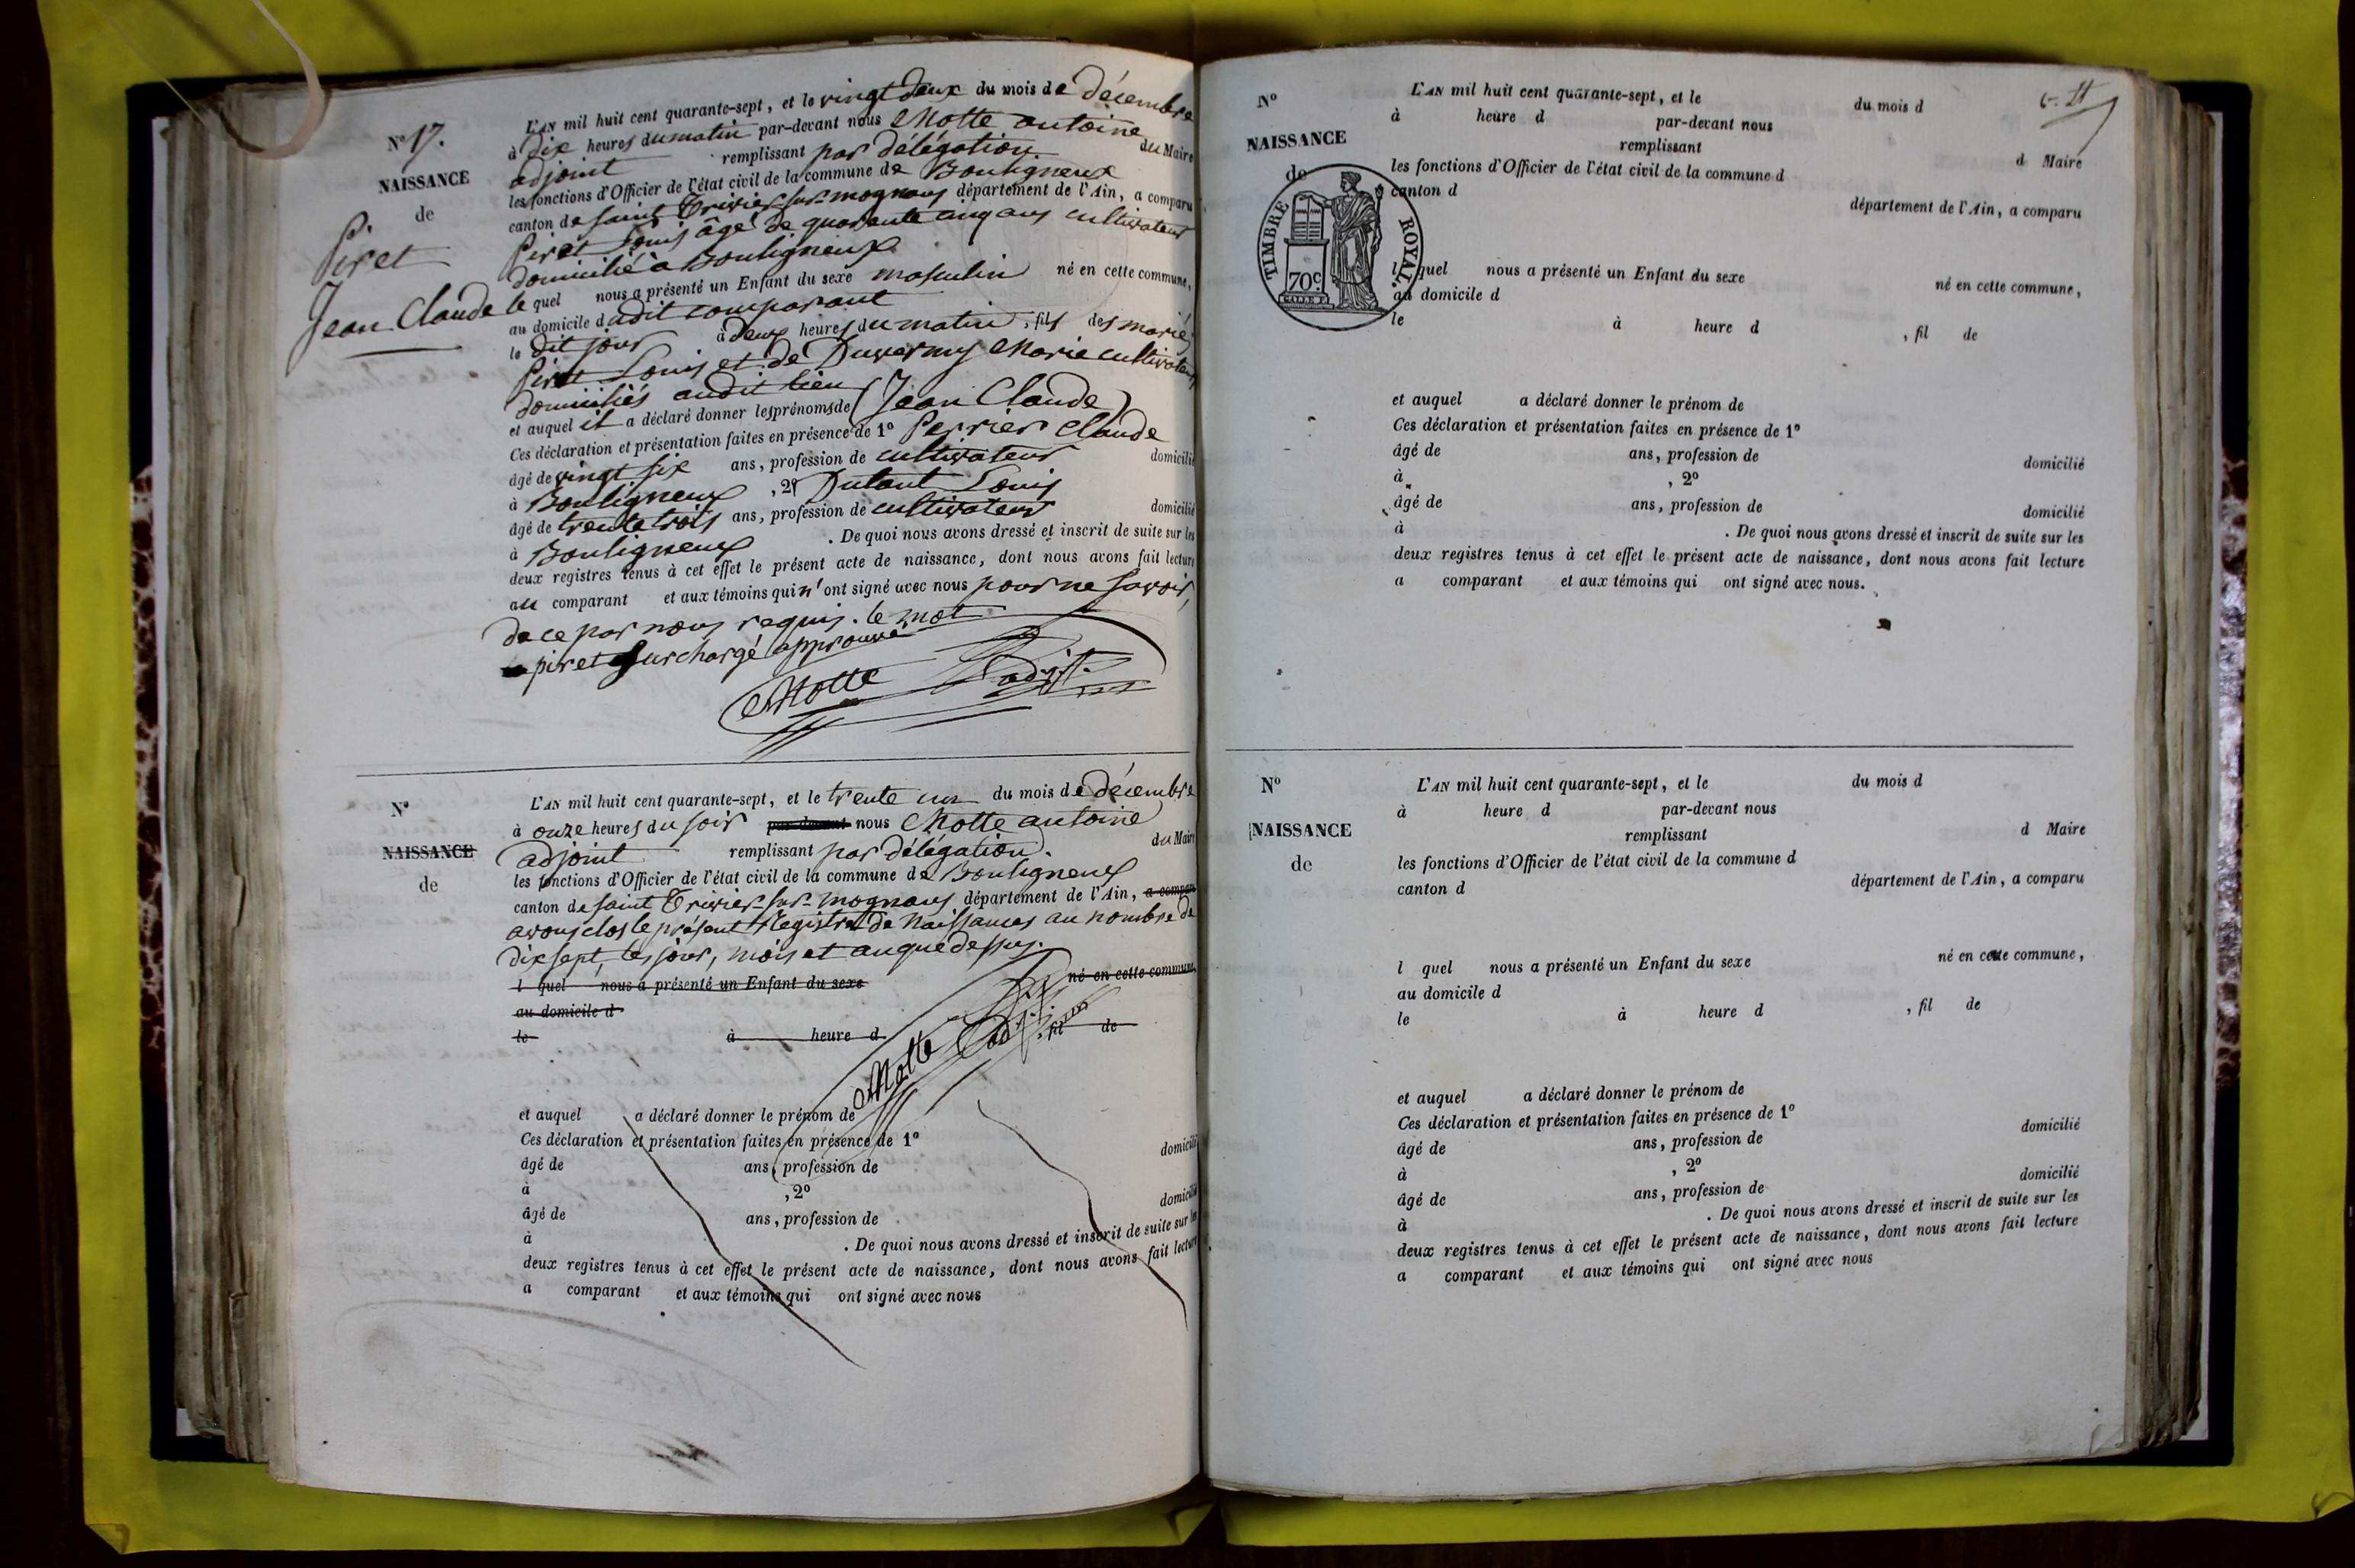 N° 17.
NAISSANCE
de
Piret
Jean Claude
L'AN mil huit cent quarante-sept, et le vingt deux du mois de décembre
à dix heures du matin par-devant nous Motte antoine
adjoint remplissant par délégation du Maire
les fonctions d'Officier de l'état civil de la commune de Bouligneux
canton de saint Trivier-sur-mognans département de l'Ain, a comparu
Piret Louis âgé de quarante cinq ans cultivateur
domicilié à Bouligneux
le quel nous a présenté un Enfant du sexe masculin né en cette commune,
au domicile dudit comparant
le dit jour à deux heures du matin, fils des mariés
Piret Louis et de Duvernay Marie cultivateurs
domiciliés audit lieu
et auquel il a déclaré donner les prénoms de (Jean Claude)
Ces déclaration et présentation faites en présence de 1° Perrier Claude
âgé de vingt six ans, profession de cultivateur domicilié
à Bouligneux, 2° Dutant Louis
âgé de trente trois ans, profession de cultivateur domicilié
à Bouligneux. De quoi nous avons dressé et inscrit de suite sur les
deux registres tenus à cet effet le présent acte de naissance, dont nous avons fait lecture
au comparant et aux témoins qui n'ont signé avec nous pour ne savoir,
de ce par nous requis. le mot
piret surchargé approuvé
Motte adjt.
N°
NAISSANCE
de
L'AN mil huit cent quarante-sept, et le trente un du mois de décembre
à onze heures du soir par-devant nous Motte antoine
adjoint remplissant par délégation. du Maire
les fonctions d'Officier de l'état civil de la commune de Bouligneux
canton de saint Trivier-sur-mognans département de l'Ain, a comparu
avons clos le présent Registre de Naissances au nombre de
dix sept, les jour, mois et an que dessus.
l quel nous a présenté un Enfant du sexe né en cette commune,
au domicile d
le à heure d , fil de
Motte adjt.
et auquel a déclaré donner le prénom de
Ces déclaration et présentation faites en présence de 1°
âgé de ans, profession de domicilié
à , 2°
âgé de ans, profession de domicilié
à . De quoi nous avons dressé et inscrit de suite sur les
deux registres tenus à cet effet le présent acte de naissance, dont nous avons fait lecture
a comparant et aux témoins qui ont signé avec nous
N°
NAISSANCE
de
TIMBRE ROYAL.
70c.
L'AN mil huit cent quarante-sept, et le du mois d
à heure d par-devant nous
remplissant d Maire
les fonctions d'Officier de l'état civil de la commune d
canton d département de l'Ain, a comparu
l quel nous a présenté un Enfant du sexe né en cette commune,
au domicile d
le à heure d , fil de
et auquel a déclaré donner le prénom de
Ces déclaration et présentation faites en présence de 1°
âgé de ans, profession de domicilié
à , 2°
âgé de ans, profession de domicilié
à . De quoi nous avons dressé et inscrit de suite sur les
deux registres tenus à cet effet le présent acte de naissance, dont nous avons fait lecture
a comparant et aux témoins qui ont signé avec nous.
N°
NAISSANCE
de
L'AN mil huit cent quarante-sept, et le du mois d
à heure d par-devant nous
remplissant d Maire
les fonctions d'Officier de l'état civil de la commune d
canton d département de l'Ain, a comparu
l quel nous a présenté un Enfant du sexe né en cette commune,
au domicile d
le à heure d , fil de
et auquel a déclaré donner le prénom de
Ces déclaration et présentation faites en présence de 1°
âgé de ans, profession de domicilié
à , 2°
âgé de ans, profession de domicilié
à . De quoi nous avons dressé et inscrit de suite sur les
deux registres tenus à cet effet le présent acte de naissance, dont nous avons fait lecture
a comparant et aux témoins qui ont signé avec nous